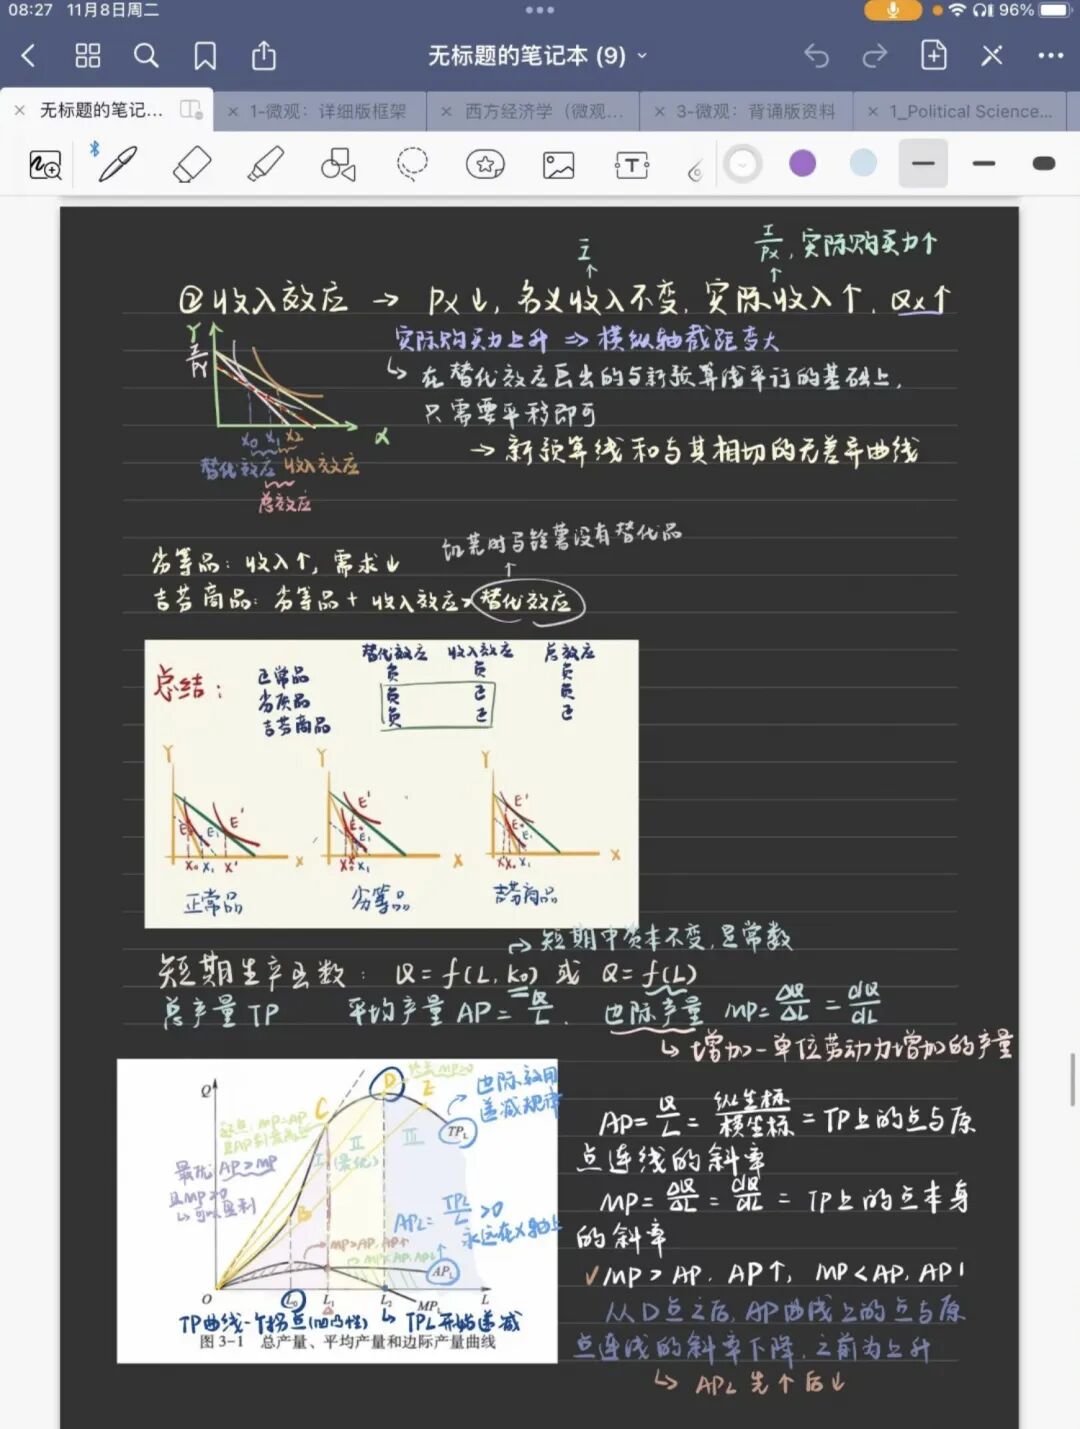 08:27 11月8日周二
96%
无标题的笔记本 (9)
无标题的笔记...
1-微观：详细版框架
西方经济学（微观...
3-微观：背诵版资料
1_Political Science...
I
I/Px, 实际购买力↑
②收入效应 → Px↓, 名义收入不变, 实际收入↑, Qx↑
实际购买力上升 ⇒ 横纵轴截距变大
↳ 在替代效应画出的与新预算线平行的基础上,
只需要平移即可
→ 新预算线和与其相切的无差异曲线
Y
I/PY
X0 X1 X2
替代效应 收入效应
总效应
如荒时马铃薯没有替代品
劣等品: 收入↑, 需求↓
吉芬商品: 劣等品 + 收入效应>替代效应
总结:
替代效应 收入效应 总效应
正常品 负 负 负
劣质品 负 正 负
吉芬商品 负 正 正
Y Y Y
E' E' E'
E0 E1 E0 E1 E0 E1
X0 X1 X' X X X
正常品 劣等品 吉芬商品
→ 短期中资本不变, 是常数
短期生产函数: Q = f(L, K0) 或 Q = f(L)
总产量 TP 平均产量 AP = Q/L. 边际产量 MP = ΔQ/ΔL = dQ/dL
↳ 增加一单位劳动力增加的产量
Q
C D E
边际效用
递减规律
TPL
I II III
(最优)
最优 AP>MP
且MP≥0
↳可以盈利
B
APL = TPL/L >0
永远在x轴上
MP>AP, AP↑
MP<AP, AP↓
APL
O L0 L1 L2 MPL L
TP曲线一个拐点(凹凸性) ↳ TPL开始递减
图 3-1 总产量、平均产量和边际产量曲线
AP = Q/L = 纵坐标/横坐标 = TP上的点与原
点连线的斜率
MP = ΔQ/ΔL = dQ/dL = TP上的点本身
的斜率
✓MP > AP, AP↑, MP < AP, AP↓
从D点之后, AP曲线上的点与原
点连线的斜率下降, 之前为上升
↳ APL 先↑后↓